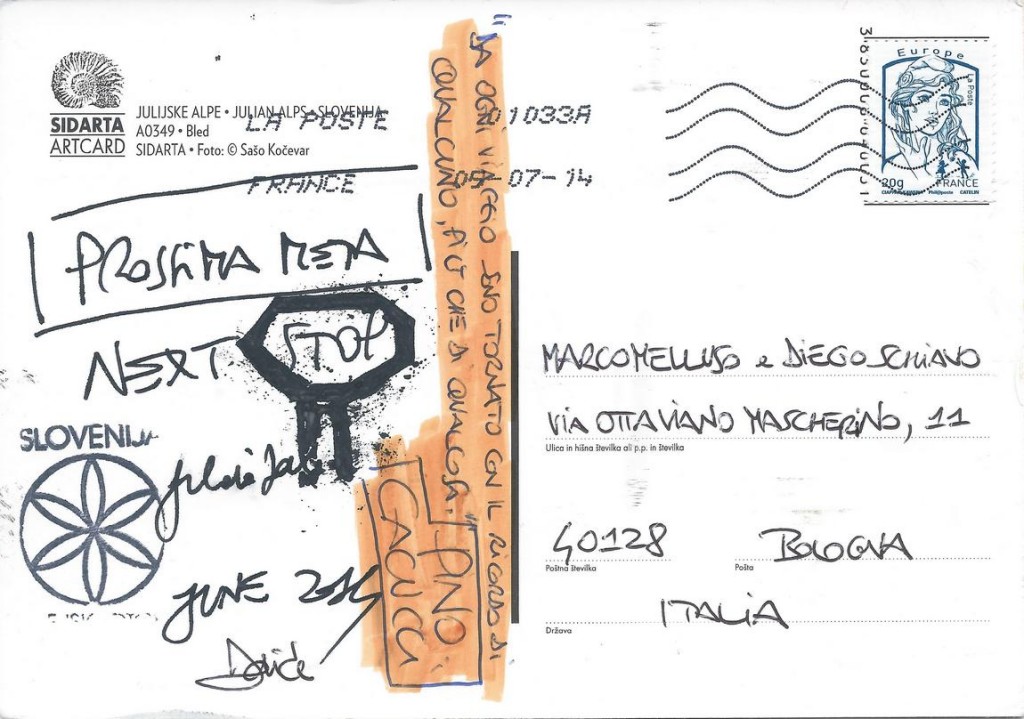 SIDARTA
ARTCARD
JULIJSKE ALPE • JULIAN ALPS • SLOVENIJA
A0349 • Bled
SIDARTA • Foto: © Sašo Kočevar
LA POSTE
01033A
FRANCE
05-07-14
Europe
La Poste
20g
FRANCE
CIAPPA & KAWENA
Phil@poste
CATELIN
PROSSIMA META
NEXT
STOP
SLOVENIJA
JUNE 2014
Davide
"DA OGNI VIAGGIO SONO TORNATO CON IL RICORDO DI
QUALCUNO, PIÙ CHE DI QUALCOSA."
PINO
CACUCCI
MARCO MELLUSO e DIEGO SCHIAVO
VIA OTTAVIANO MASCHERINO, 11
Ulica in hišna številka ali p.p. in številka
40128 BOLOGNA
Poštna številka Pošta
ITALIA
Država